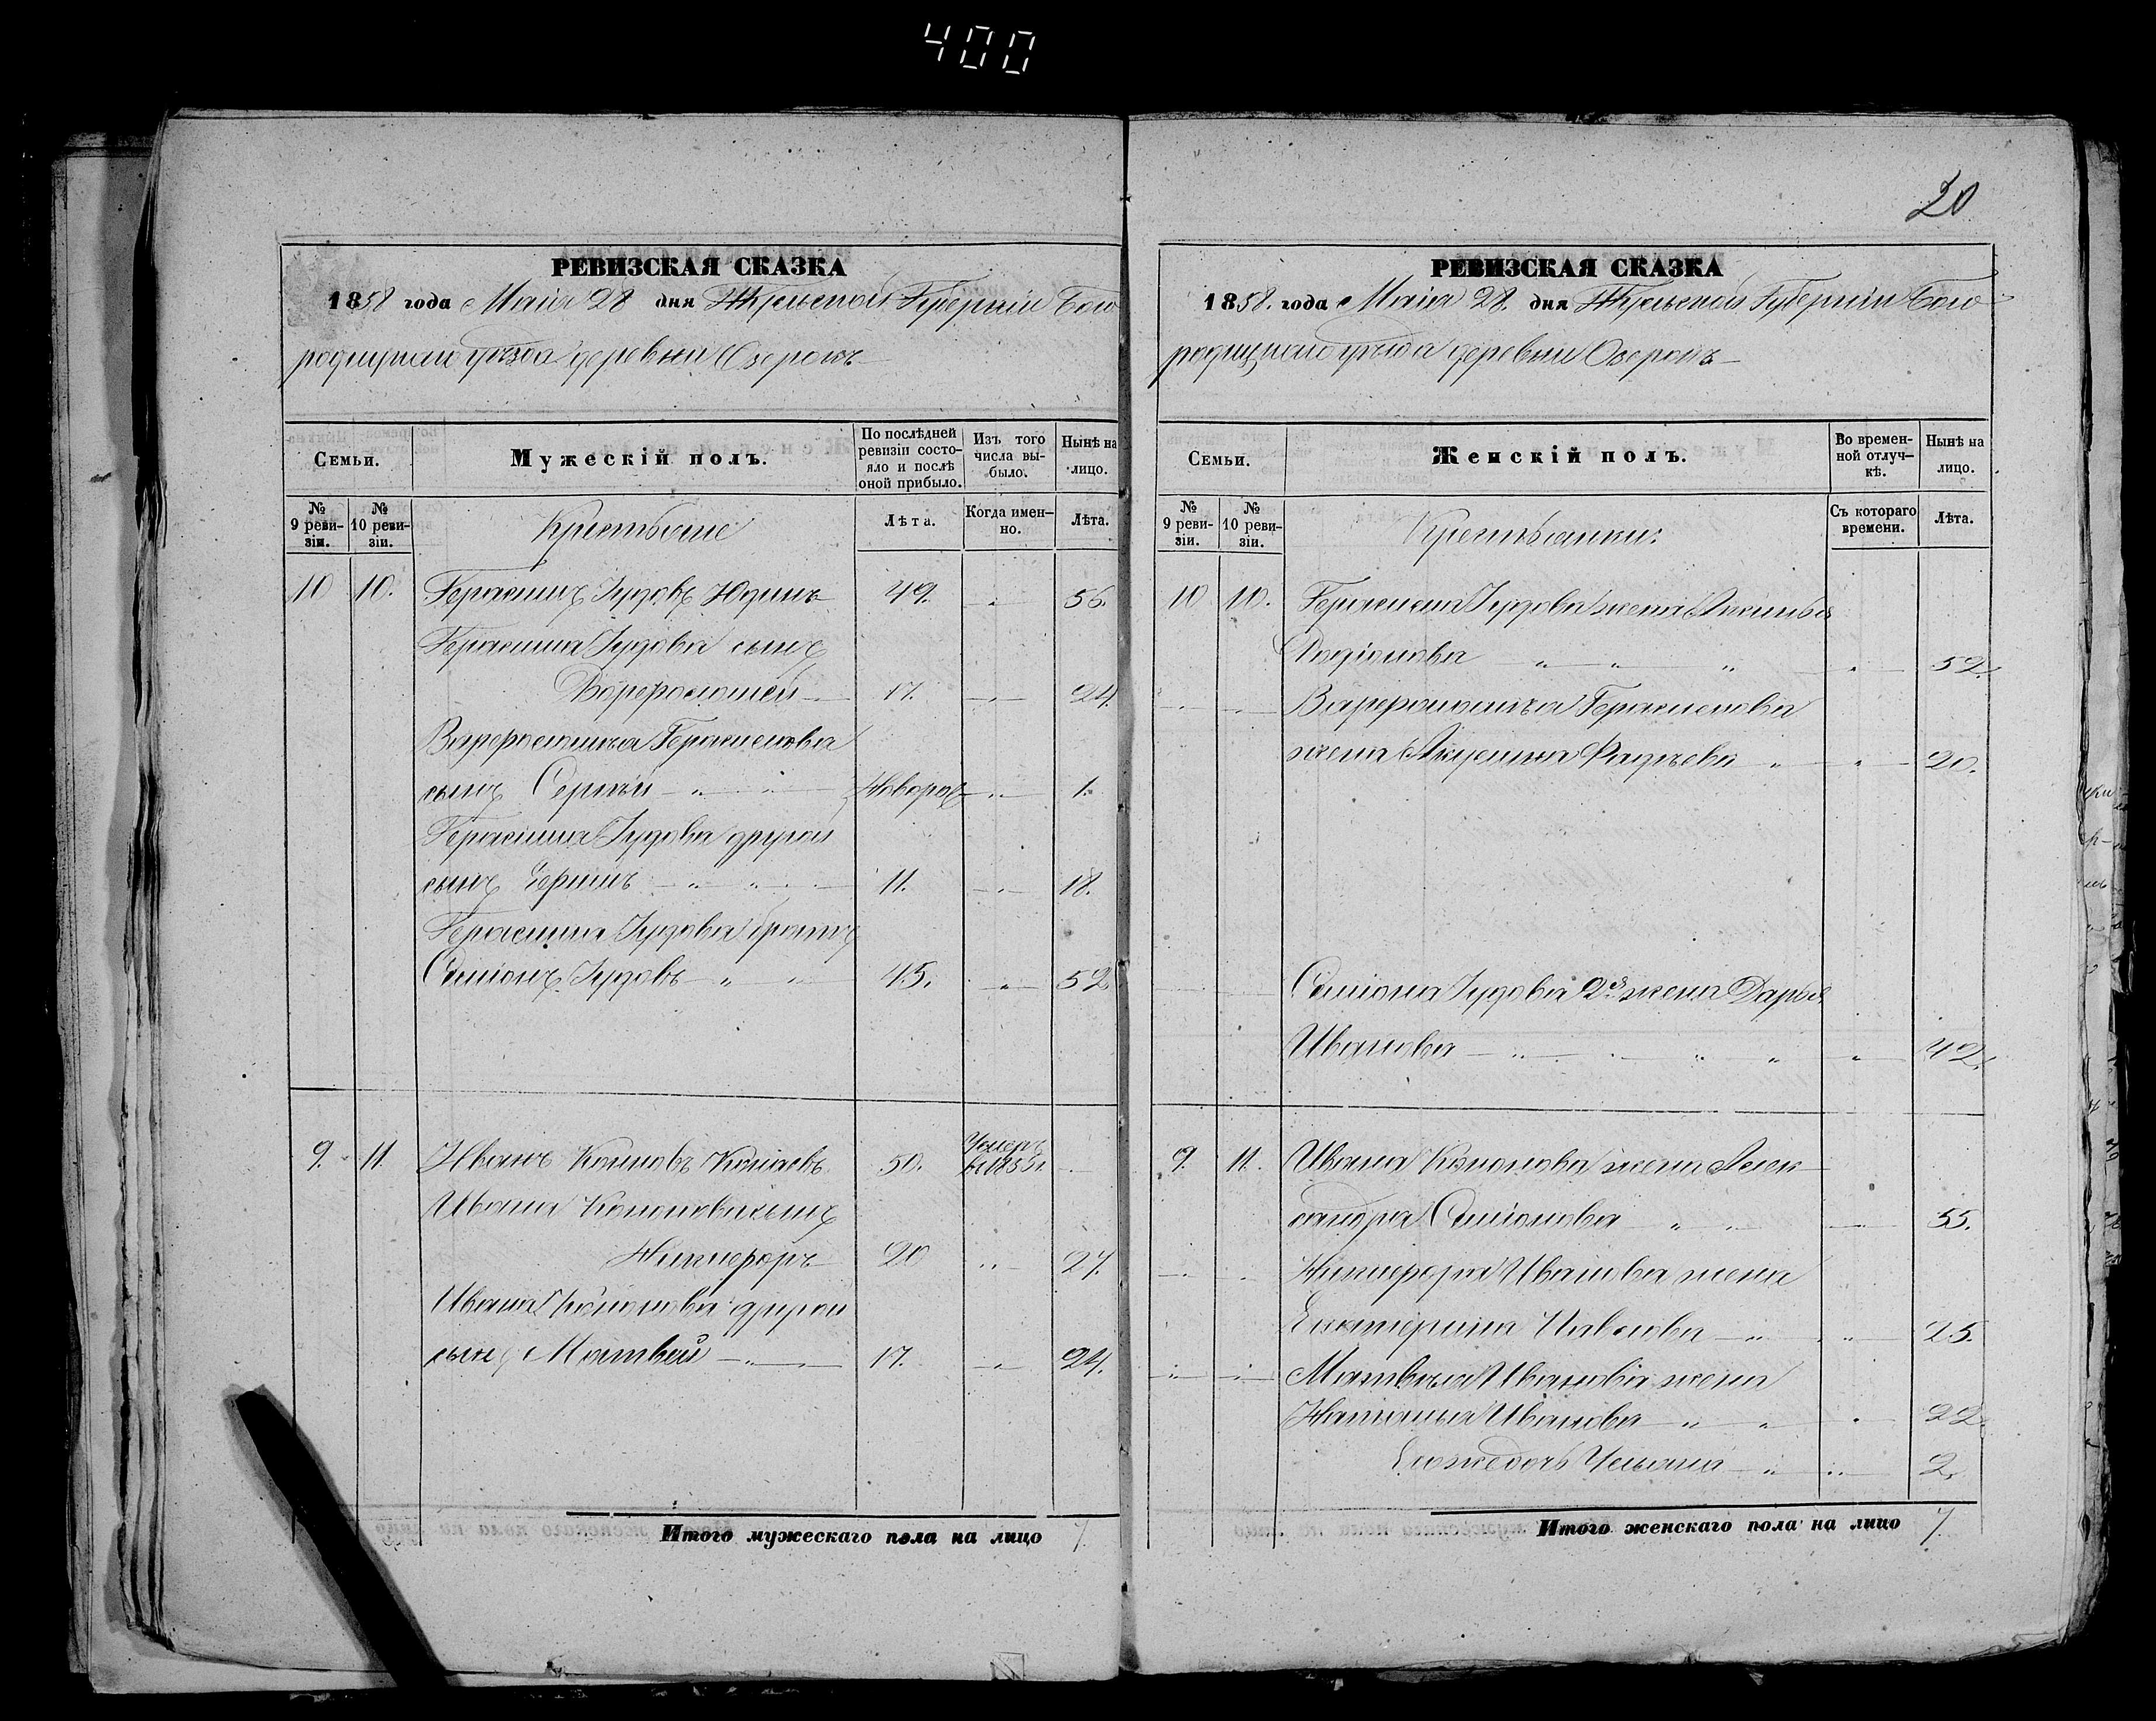 400
20
РЕВИЗСКАЯ СКАЗКА
1858 года Маія 28 дня Тульской Губерніи Бого
родицкаго уѣзда деревни Озерокъ
Семьи.
Мужескій полъ.
По послѣдней ревизіи состо-
яло и послѣ
оной прибыло.
Изъ того
числа вы-
было.
Нынѣ на
лицо.
№
9 реви-
зіи.
№
10 реви-
зіи.
Крестьяне
Лѣта.
Когда имен-
но.
Лѣта.
10 10. Герасимъ Іудовъ Юдинъ 49. 56.
Герасима Іудова сынъ
Варфоломей 17. 24.
Варфоломѣя Герасимова
сынъ Сергѣй Новорож 1.
Герасима Іудова другой
сынъ Ефимъ 11. 18.
Герасима Іудова братъ
Симіонъ Іудовъ 45. 52
9. 11. Иванъ Кононовъ 50. Умеръ
въ 1855 г.
Ивана Кононова сынъ
Никифоръ 20 27.
Ивана Кононова другой
сынъ Матвей 17. 24.
Итого мужескаго пола на лицо 7.
РЕВИЗСКАЯ СКАЗКА
1858. года Маія 28. дня Тульской Губерніи Бого
родицкаго уѣзда деревни Озерокъ
Семьи.
Женскій полъ.
Во времен-
ной отлуч-
кѣ.
Нынѣ на
лицо.
№
9 реви-
зіи.
№
10 реви-
зіи.
Крестьянки:
Съ котораго
времени.
Лѣта.
10 10. Герасима Іудова жена Акилина
Родіонова 52.
Варфоломѣя Герасимова
жена Акулина Фадѣева 20.
Симіона Іудова 2я жена Дарья
Иванова 42.
9. 11. Ивана Кононова жена Алек-
сандра Симіонова 55.
Никифора Иванова жена
Екатерина Павлова 25.
Матвѣя Иванова жена
Наталья Иванова 22.
Его же дочь Ульяна 2.
Итого женскаго пола на лицо 7.